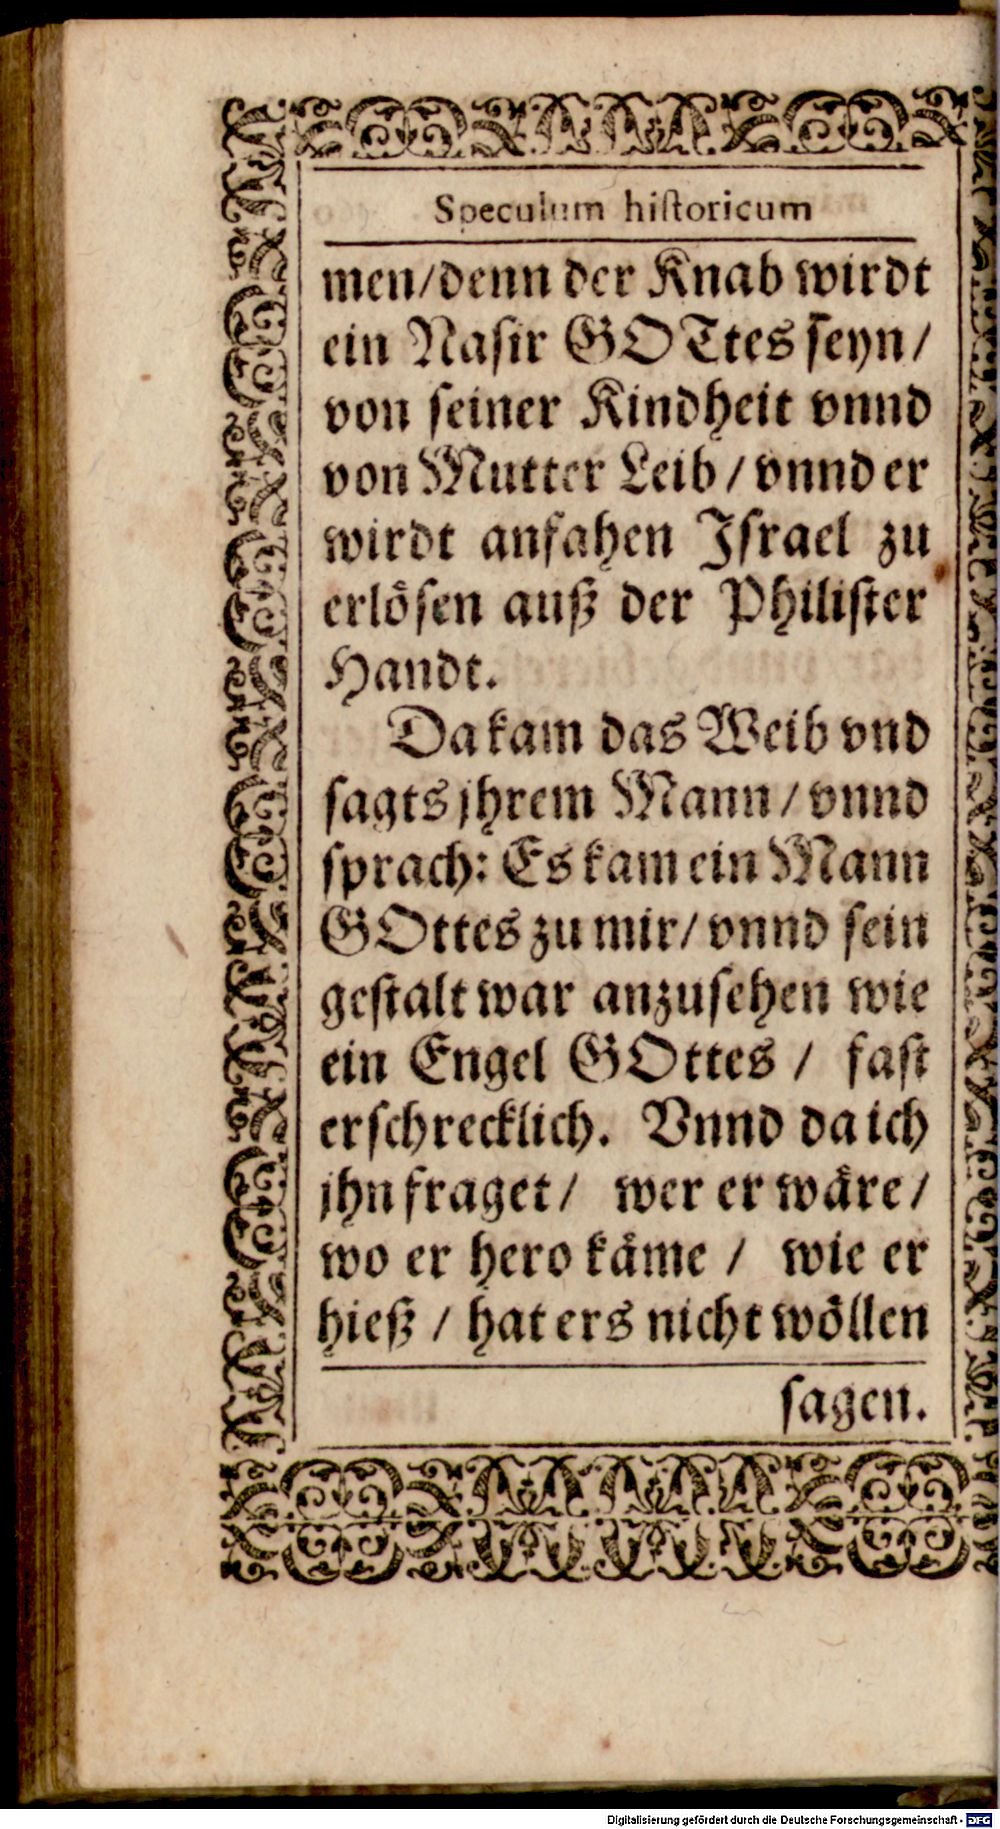 Speculum hiſtoricum
men/denn der Knab wirdt
ein Naſir GOTtes ſeyn/
von ſeiner Kindheit vnnd
von Mutter Leib / vnnd er
wirdt anfahen Iſrael zu
erlöſen auß der Philiſter
Handt.
Da kam das Weib vnd
ſagts jhrem Mann / vnnd
ſprach: Es kam ein Mann
GOttes zu mir/ vnnd ſein
geſtalt war anzuſehen wie
ein Engel GOttes / faſt
erſchrecklich. Vnnd da ich
jhn fraget / wer er wäre /
wo er hero käme / wie er
hieß / hat ers nicht wöllen
ſagen.
Digitalisierung gefördert durch die Deutsche Forschungsgemeinschaft - DFG